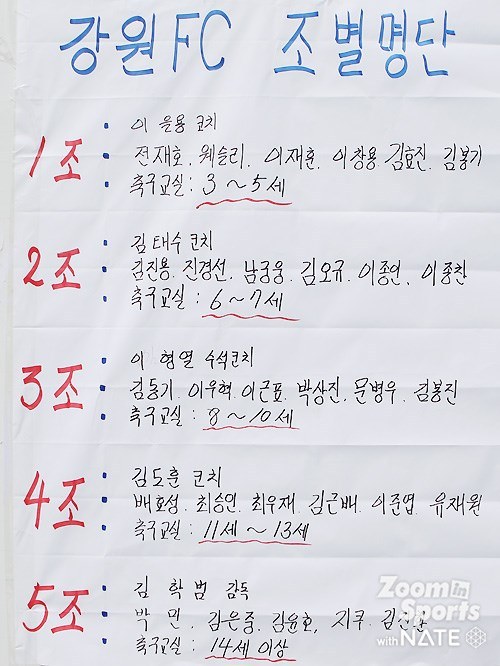 강원FC 조별명단
1조
이 을용 코치
전재호, 웨슬리, 이재훈, 이창용 김효진, 김봉기
축구교실 : 3 ~ 5세
2조
김태수 코치
김진용. 진경선, 남궁웅. 김오규. 이종인, 이종찬
축구교실 : 6 ~ 7세
3조
이 형열 수석코치
김동기. 이우혁. 이근표, 박상진, 문병우. 김봉진
축구교실 : 8 ~ 10세
4조
김도훈 코치
배효성. 최승인. 최우재. 김근배. 이준엽. 유재원
축구교실 : 11세 ~ 13세
5조
김 학범 감독
박 민, 김은중. 김윤호, 지쿠.
축구교실 : 14세 이상
Zoom in Sports
with NATE